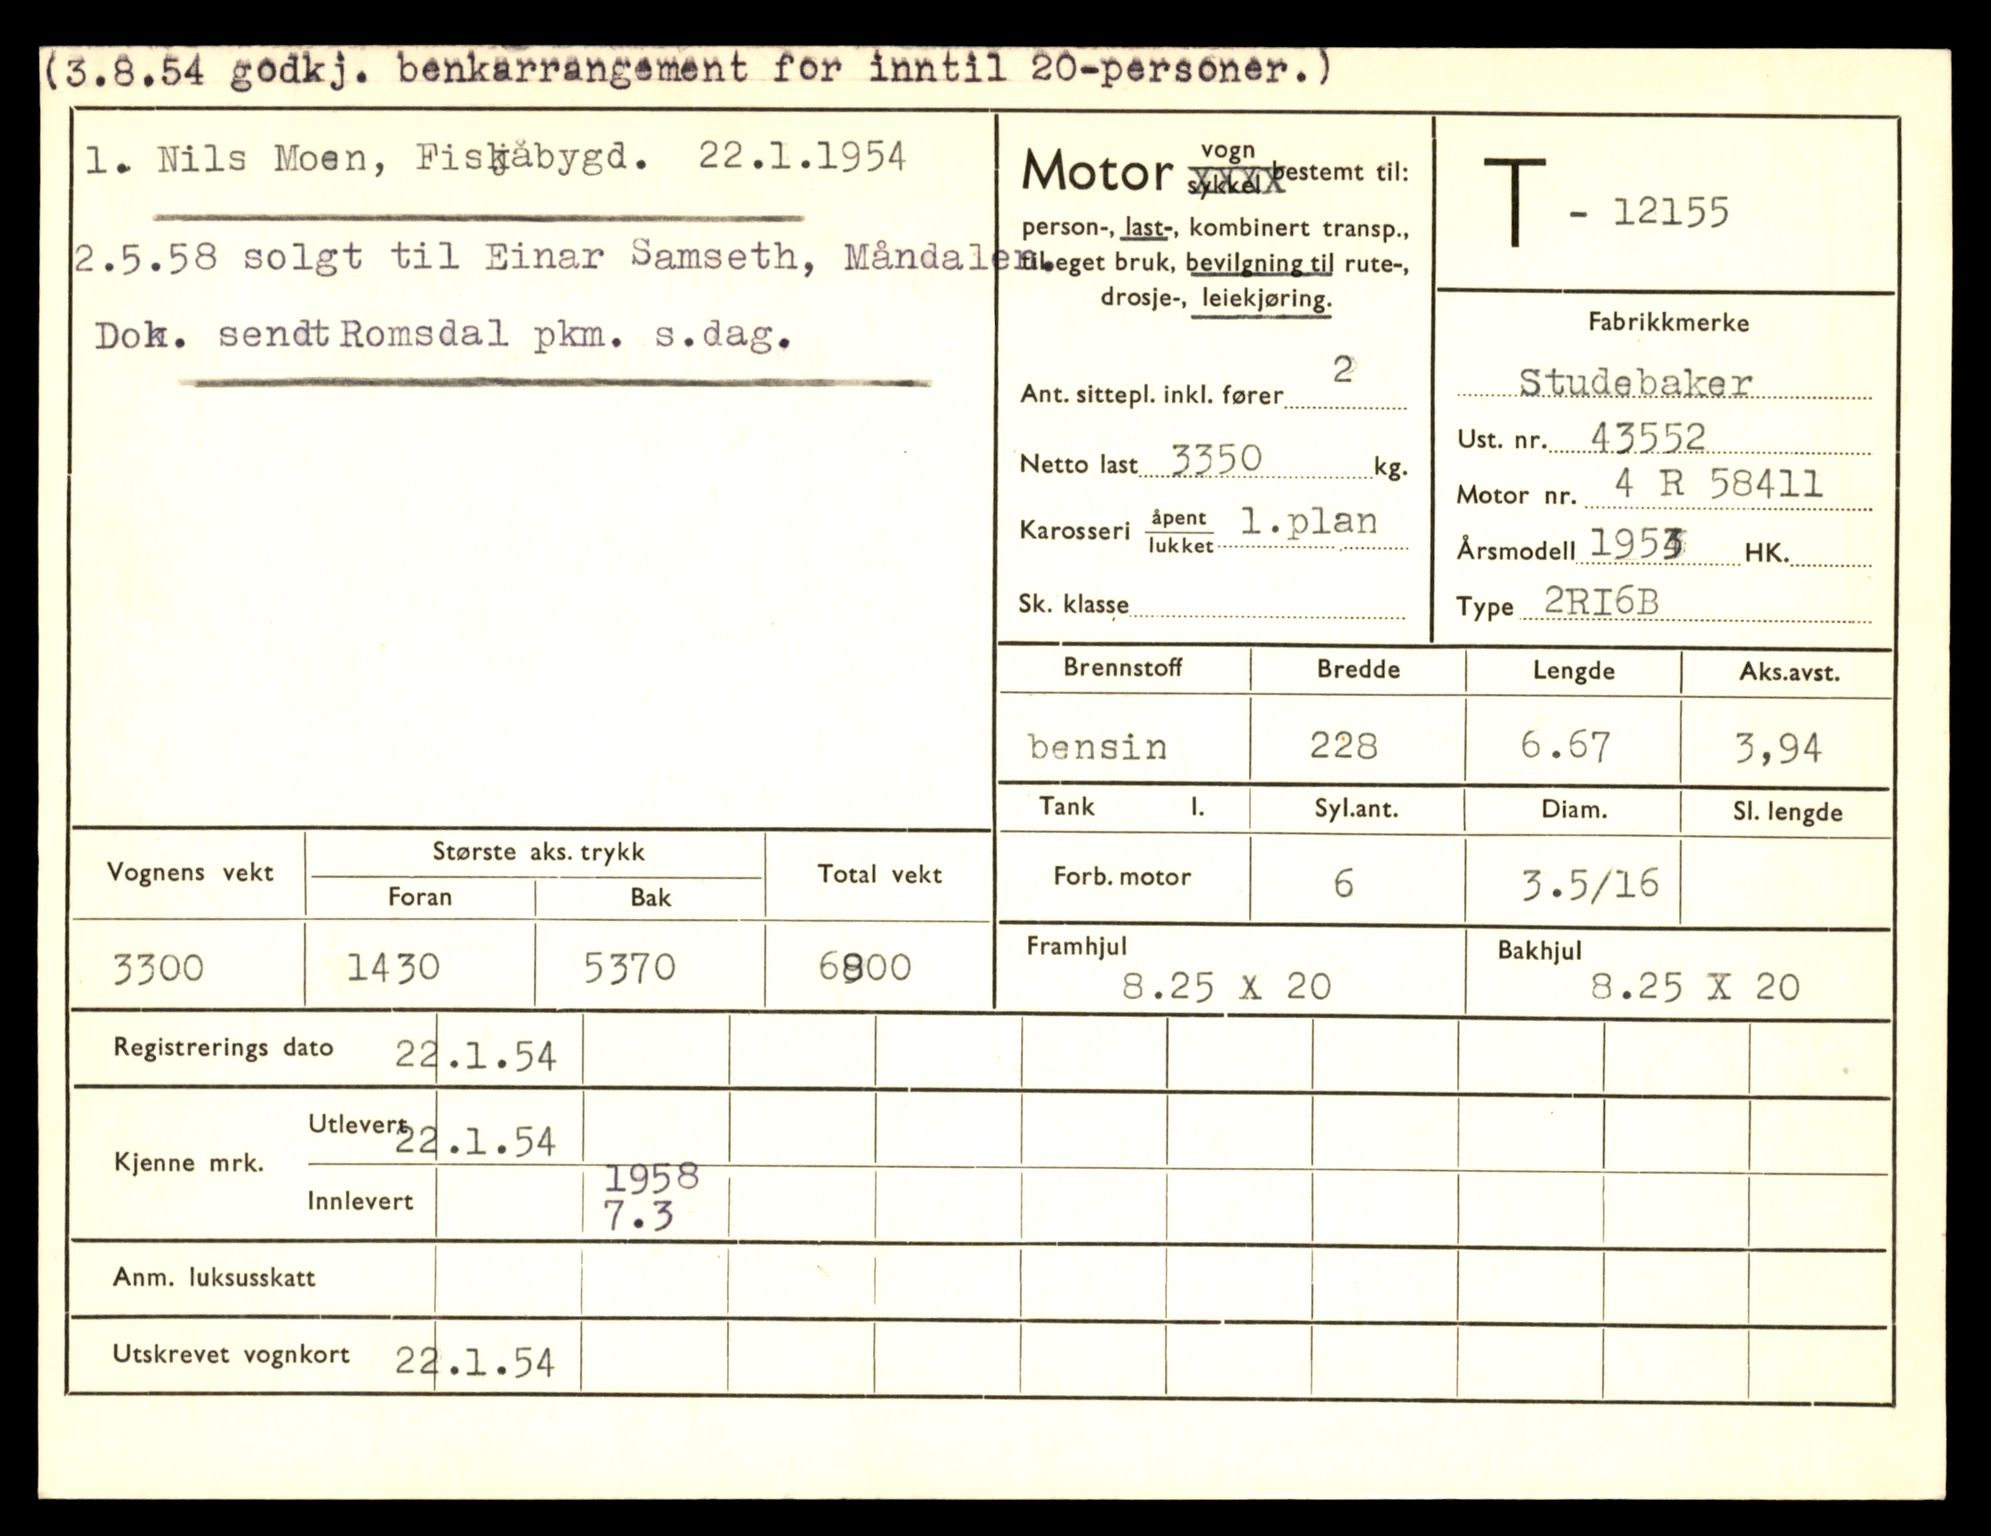 (3.8.54 godkj. benkarrangement for inntil 20-personer.)
1. Nils Moen, Fiskåbygd. 22.1.1954
2.5.58 solgt til Einar Samseth, Måndalen.
Dok. sendt Romsdal pkm. s.dag.
Motor vogn sykkel bestemt til:
person-, last-, kombinert transp.,
til eget bruk, bevilgning til rute-,
drosje-, leiekjøring.
Ant. sittepl. inkl. fører 2
Netto last 3350 kg.
Karosseri åpent lukket l.plan
Sk. klasse
T - 12155
Fabrikkmerke
Studebaker
Ust. nr. 43552
Motor nr. 4 R 58411
Årsmodell HK.
Type 2RI6B
Brennstoff Bredde Lengde Aks.avst.
bensin 228 6.67 3,94
Tank l. Syl.ant. Diam. Sl. lengde
Forb. motor 6 3.5/16
Framhjul Bakhjul
8.25 X 20 8.25 X 20
Vognens vekt Største aks. trykk Total vekt
Foran Bak
3300 1430 5370 6800
Registrerings dato 22.1.54
Kjenne mrk. Utlevert 22.1.54
Innlevert 1958
7.3
Anm. luksusskatt
Utskrevet vognkort 22.1.54